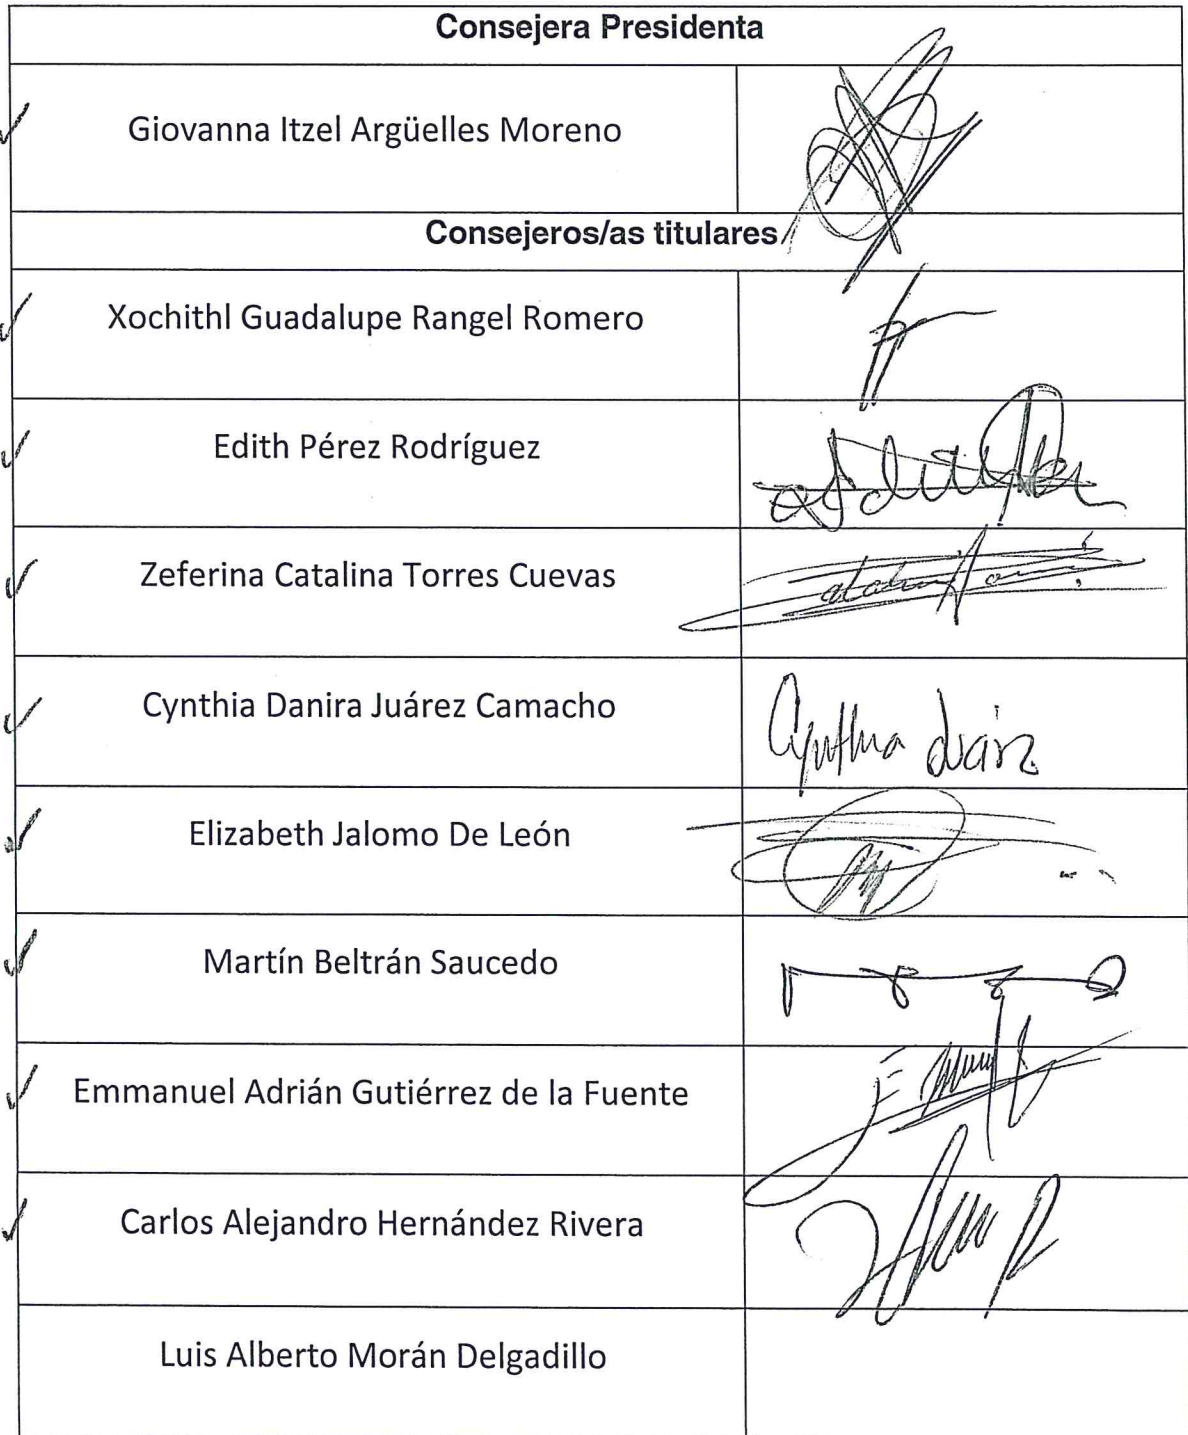 Consejera Presidenta
Giovanna Itzel Argüelles Moreno
Consejeros/as titulares
Xochithl Guadalupe Rangel Romero
Edith Pérez Rodríguez
Zeferina Catalina Torres Cuevas
Cynthia Danira Juárez Camacho
Cynthia Juárez
Elizabeth Jalomo De León
Martín Beltrán Saucedo
Emmanuel Adrián Gutiérrez de la Fuente
Carlos Alejandro Hernández Rivera
Luis Alberto Morán Delgadillo